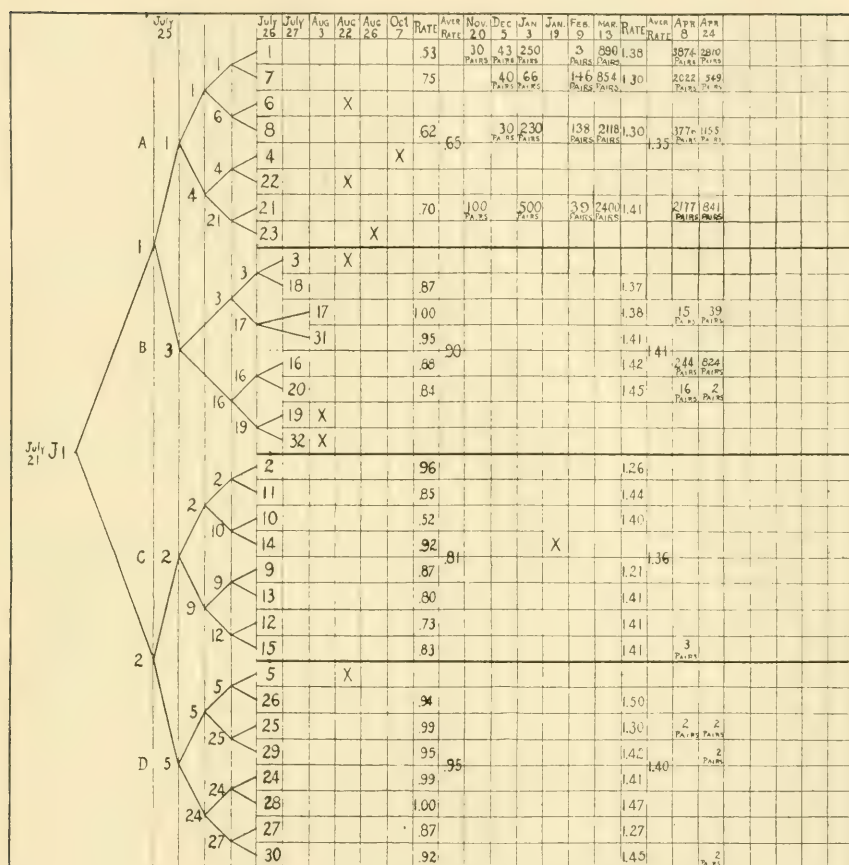 July 25 July 26 July 27 Aug 3 Aug 22 Aug 26 Oct 7 RATE AVER RATE NOV. 20 DEC 5 JAN 3 JAN. 19 FEB. 9 MAR. 13 RATE AVER RATE APR 8 APR 24
1 1 .53 30 PAIRS 43 PAIRS 250 PAIRS 3 PAIRS 890 PAIRS 1.38 3874 PAIRS 2810 PAIRS
1 7 75 40 PAIRS 66 PAIRS 146 PAIRS 854 PAIRS 1.30 2022 PAIRS 549 PAIRS
6 6 X
8 62 30 PAIRS 230 PAIRS 138 PAIRS 2118 PAIRS 1.30 PAIRS 1155 PAIRS
A 1 .65 1.35
4 4 X
4 22 X
21 21 .70 100 PAIRS 500 PAIRS 39 PAIRS 2400 PAIRS 1.41 2177 PAIRS 841 PAIRS
23 X
1
3 3 X
18 .87 1.37
3 17 17 1.00 1.38 15 PAIRS 39 PAIRS
31 .95 1.41
B 3 .90 1.41
16 16 .88 1.42 244 PAIRS 824 PAIRS
20 .84 1.45 16 PAIRS 2 PAIRS
16 19 19 X
32 X
July 21 J1
2 2 .96 1.26
2 11 .85 1.44
10 10 .52 1.40
14 .92 X
C 2 .81 1.36
9 9 .87 1.21
13 .80 1.41
9 12 12 .73 1.41
15 .83 1.41 3 PAIRS
2
5 5 X
26 .94 1.50
5 25 25 .99 1.30 2 PAIRS 2 PAIRS
29 .95 1.42 2 PAIRS
D 5 .95 1.40
24 24 .99 1.41
28 1.00 1.47
24 27 27 .87 1.27
30 .92 1.45 2 PAIRS